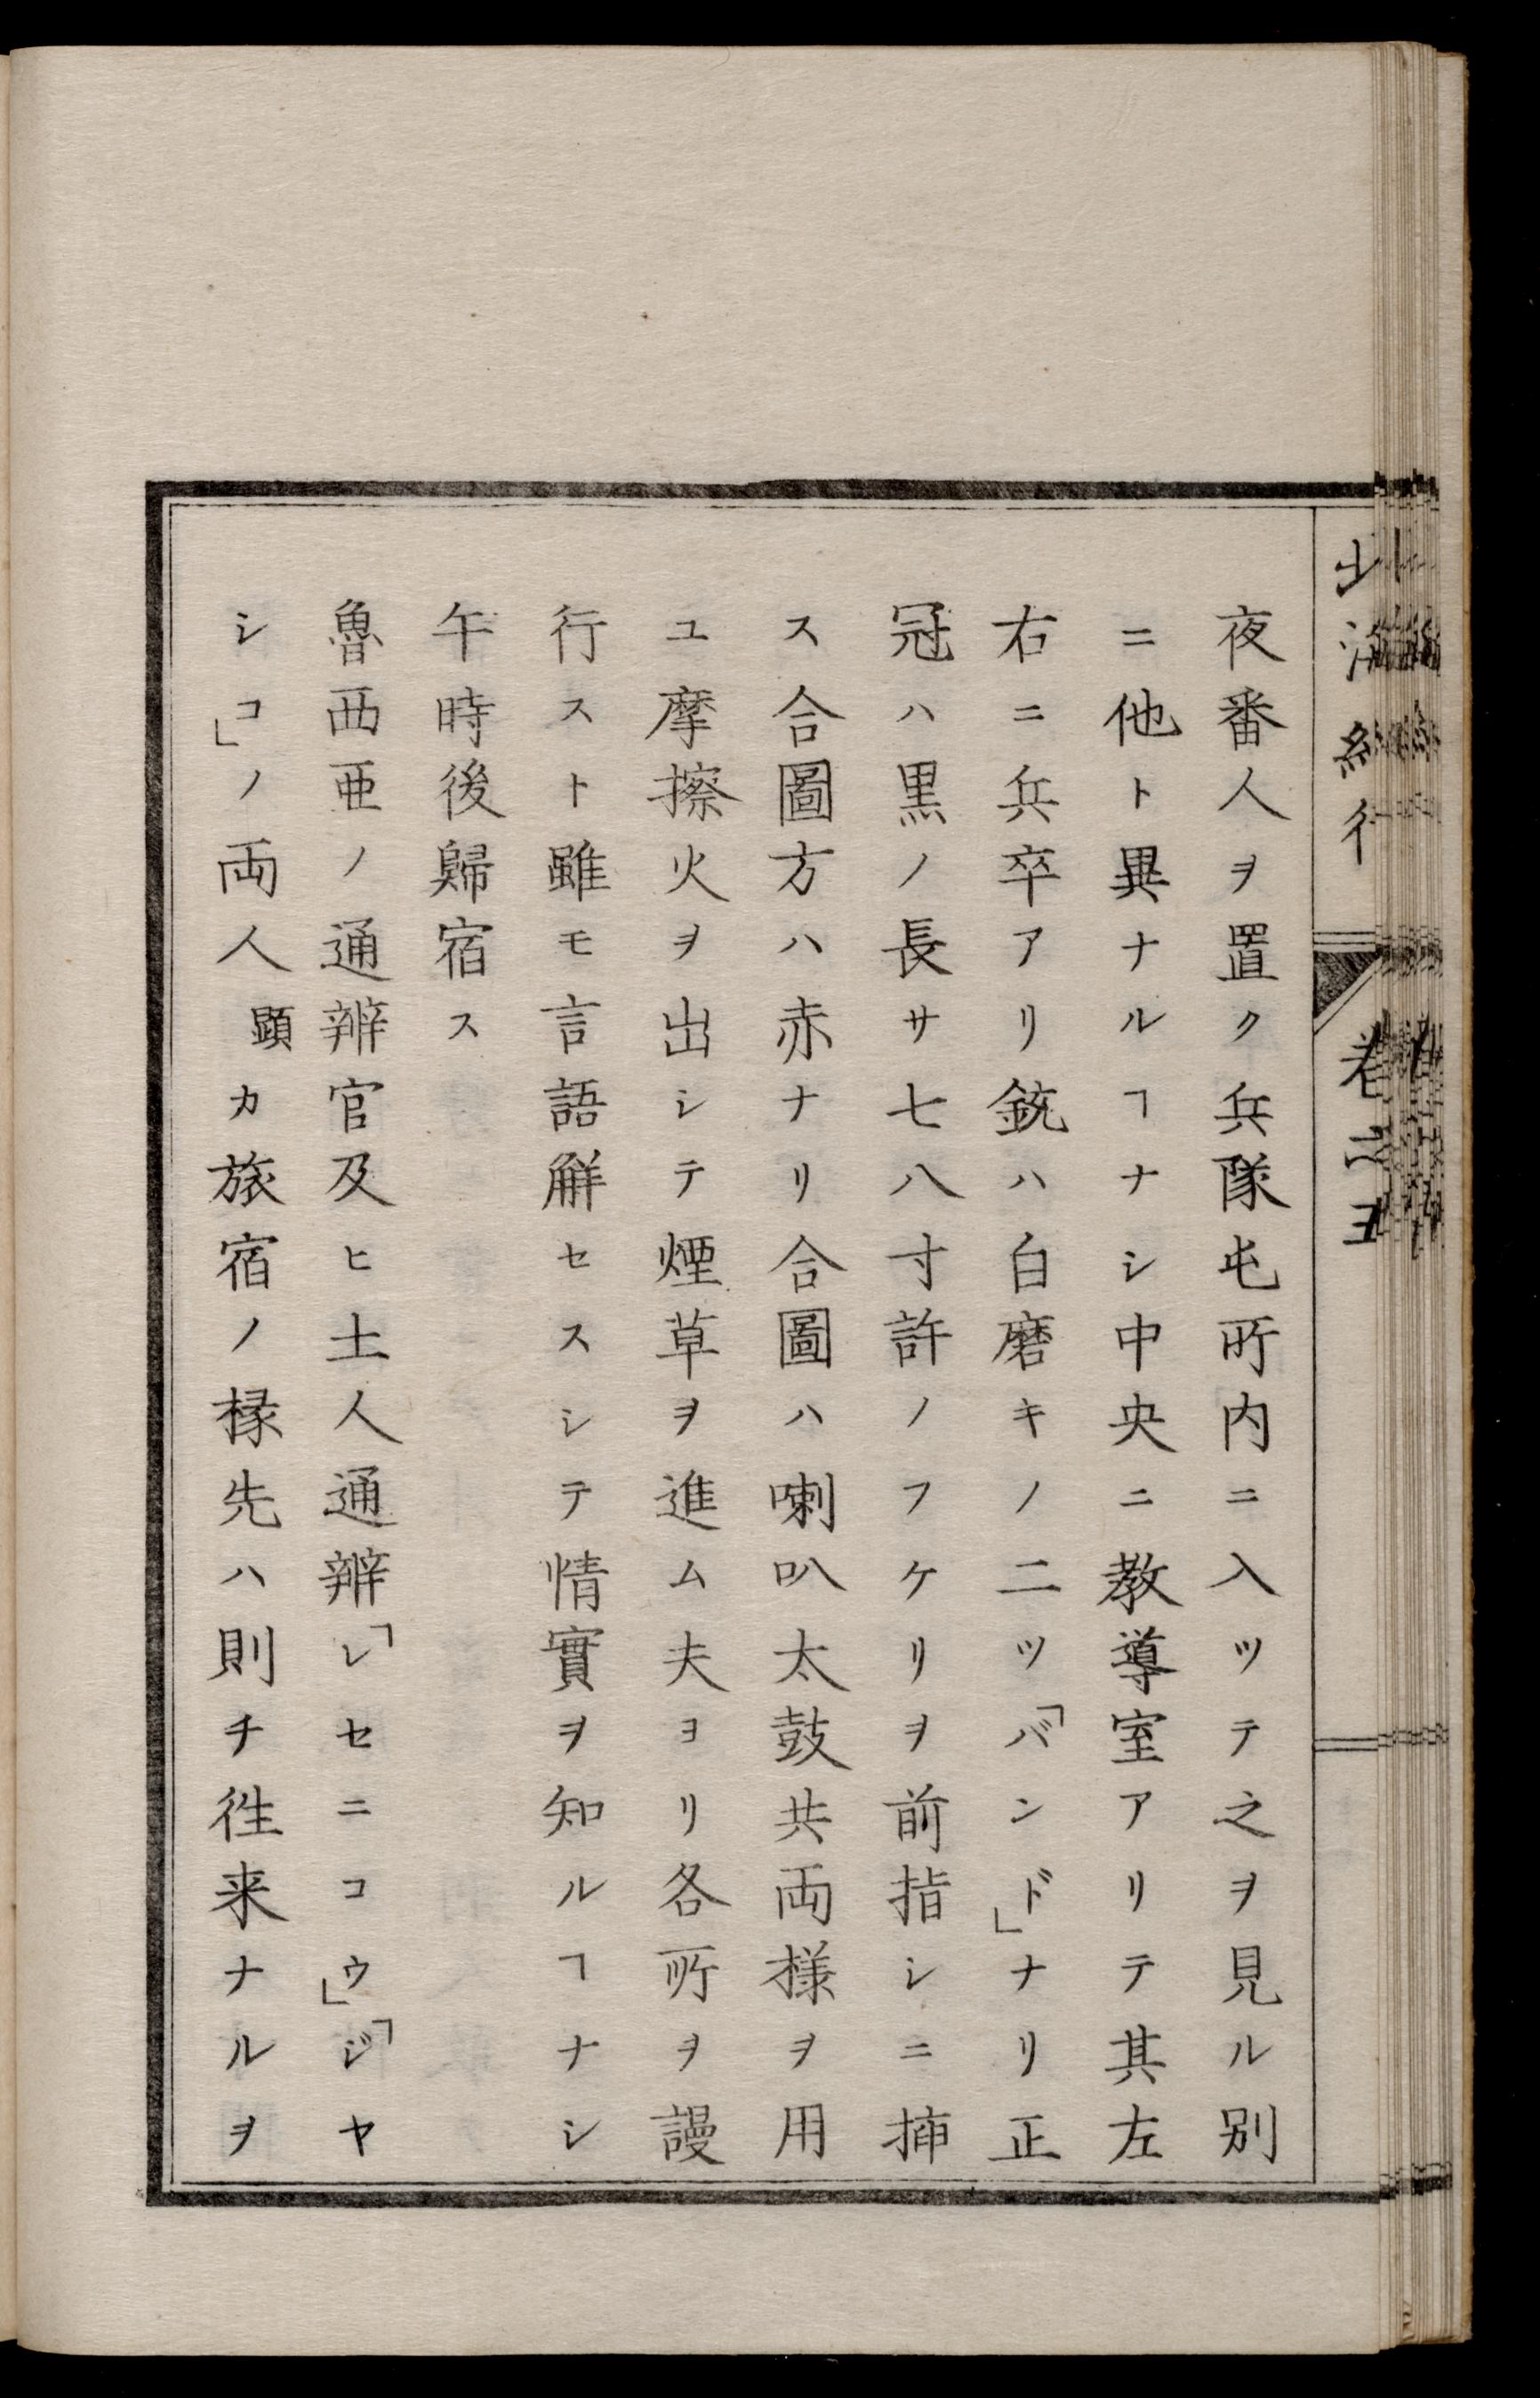 北海紀行 卷二
夜番人ヲ置ク兵隊屯所内ニ入ツテ之ヲ見ル別
ニ他ト異ナルヿナシ中央ニ教導室アリテ其左
右ニ兵卒アリ銃ハ白磨キノ二ツ「バンド」ナリ正
冠ハ黒ノ長サ七八寸許ノフケリヲ前指シニ挿
ス合圖方ハ赤ナリ合圖ハ喇叭太鼓共両様ヲ用
ユ摩擦火ヲ出シテ煙草ヲ進ム夫ヨリ各所ヲ謾
行スト雖モ言語解セスシテ情實ヲ知ルヿナシ
午時後歸宿ス
魯西亜ノ通辨官及ヒ土人通辨「レセニコウ」「ジヤ
シコ」ノ両人顕カ旅宿ノ椽先ハ則チ徃来ナルヲ